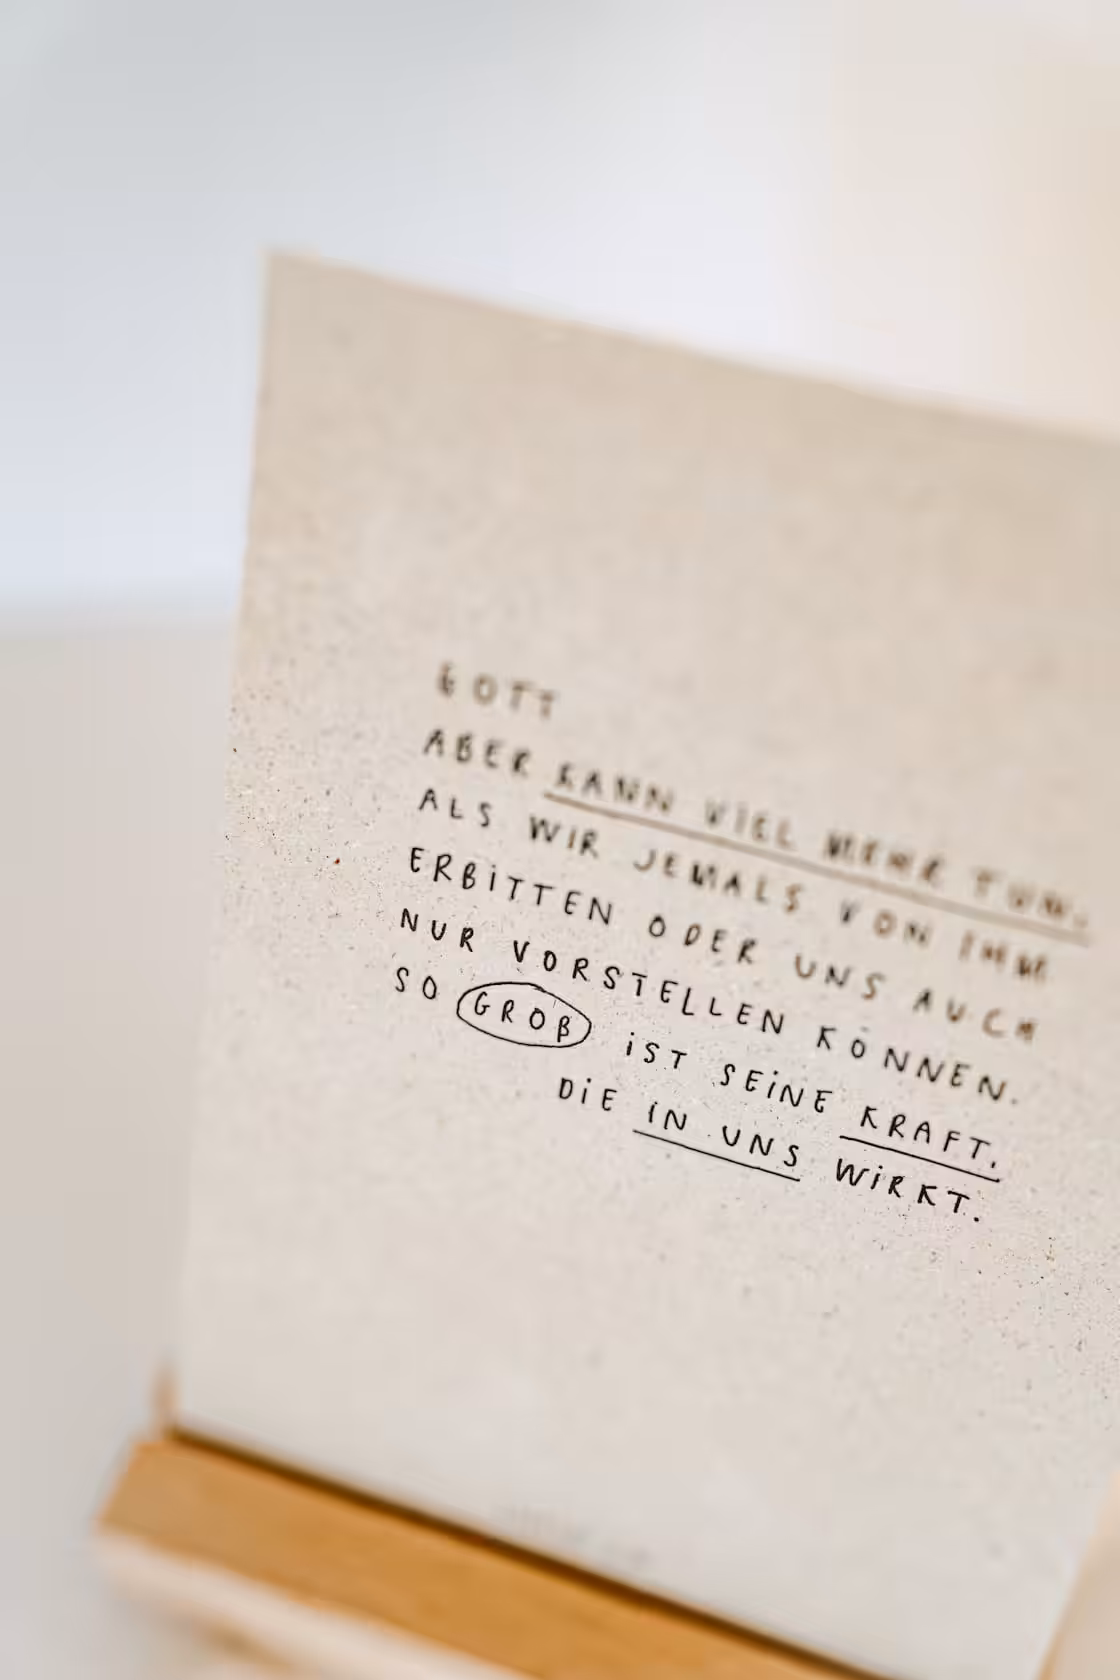 GOTT
ABER KANN VIEL MEHR TUN,
ALS WIR JEMALS VON IHM
ERBITTEN ODER UNS AUCH
NUR VORSTELLEN KÖNNEN.
SO GROß IST SEINE KRAFT,
DIE IN UNS WIRKT.